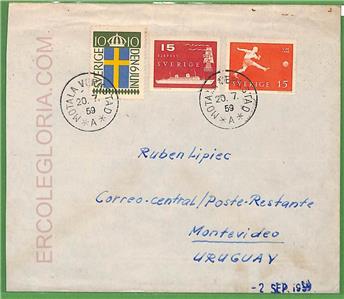 10 10
SVERIGE
DEN 6 JUNI
15
SVERIGE
SVERIGE 15
MOTALA VERKSTAD
20. 7.
59
* A *
MOTALA VERKSTAD
20. 7.
59
* A *
ERCOLEGLORIA.COM
Ruben Lipiec
Correo-central/Poste-Restante
Montevideo
URUGUAY
- 2 SEP. 1959